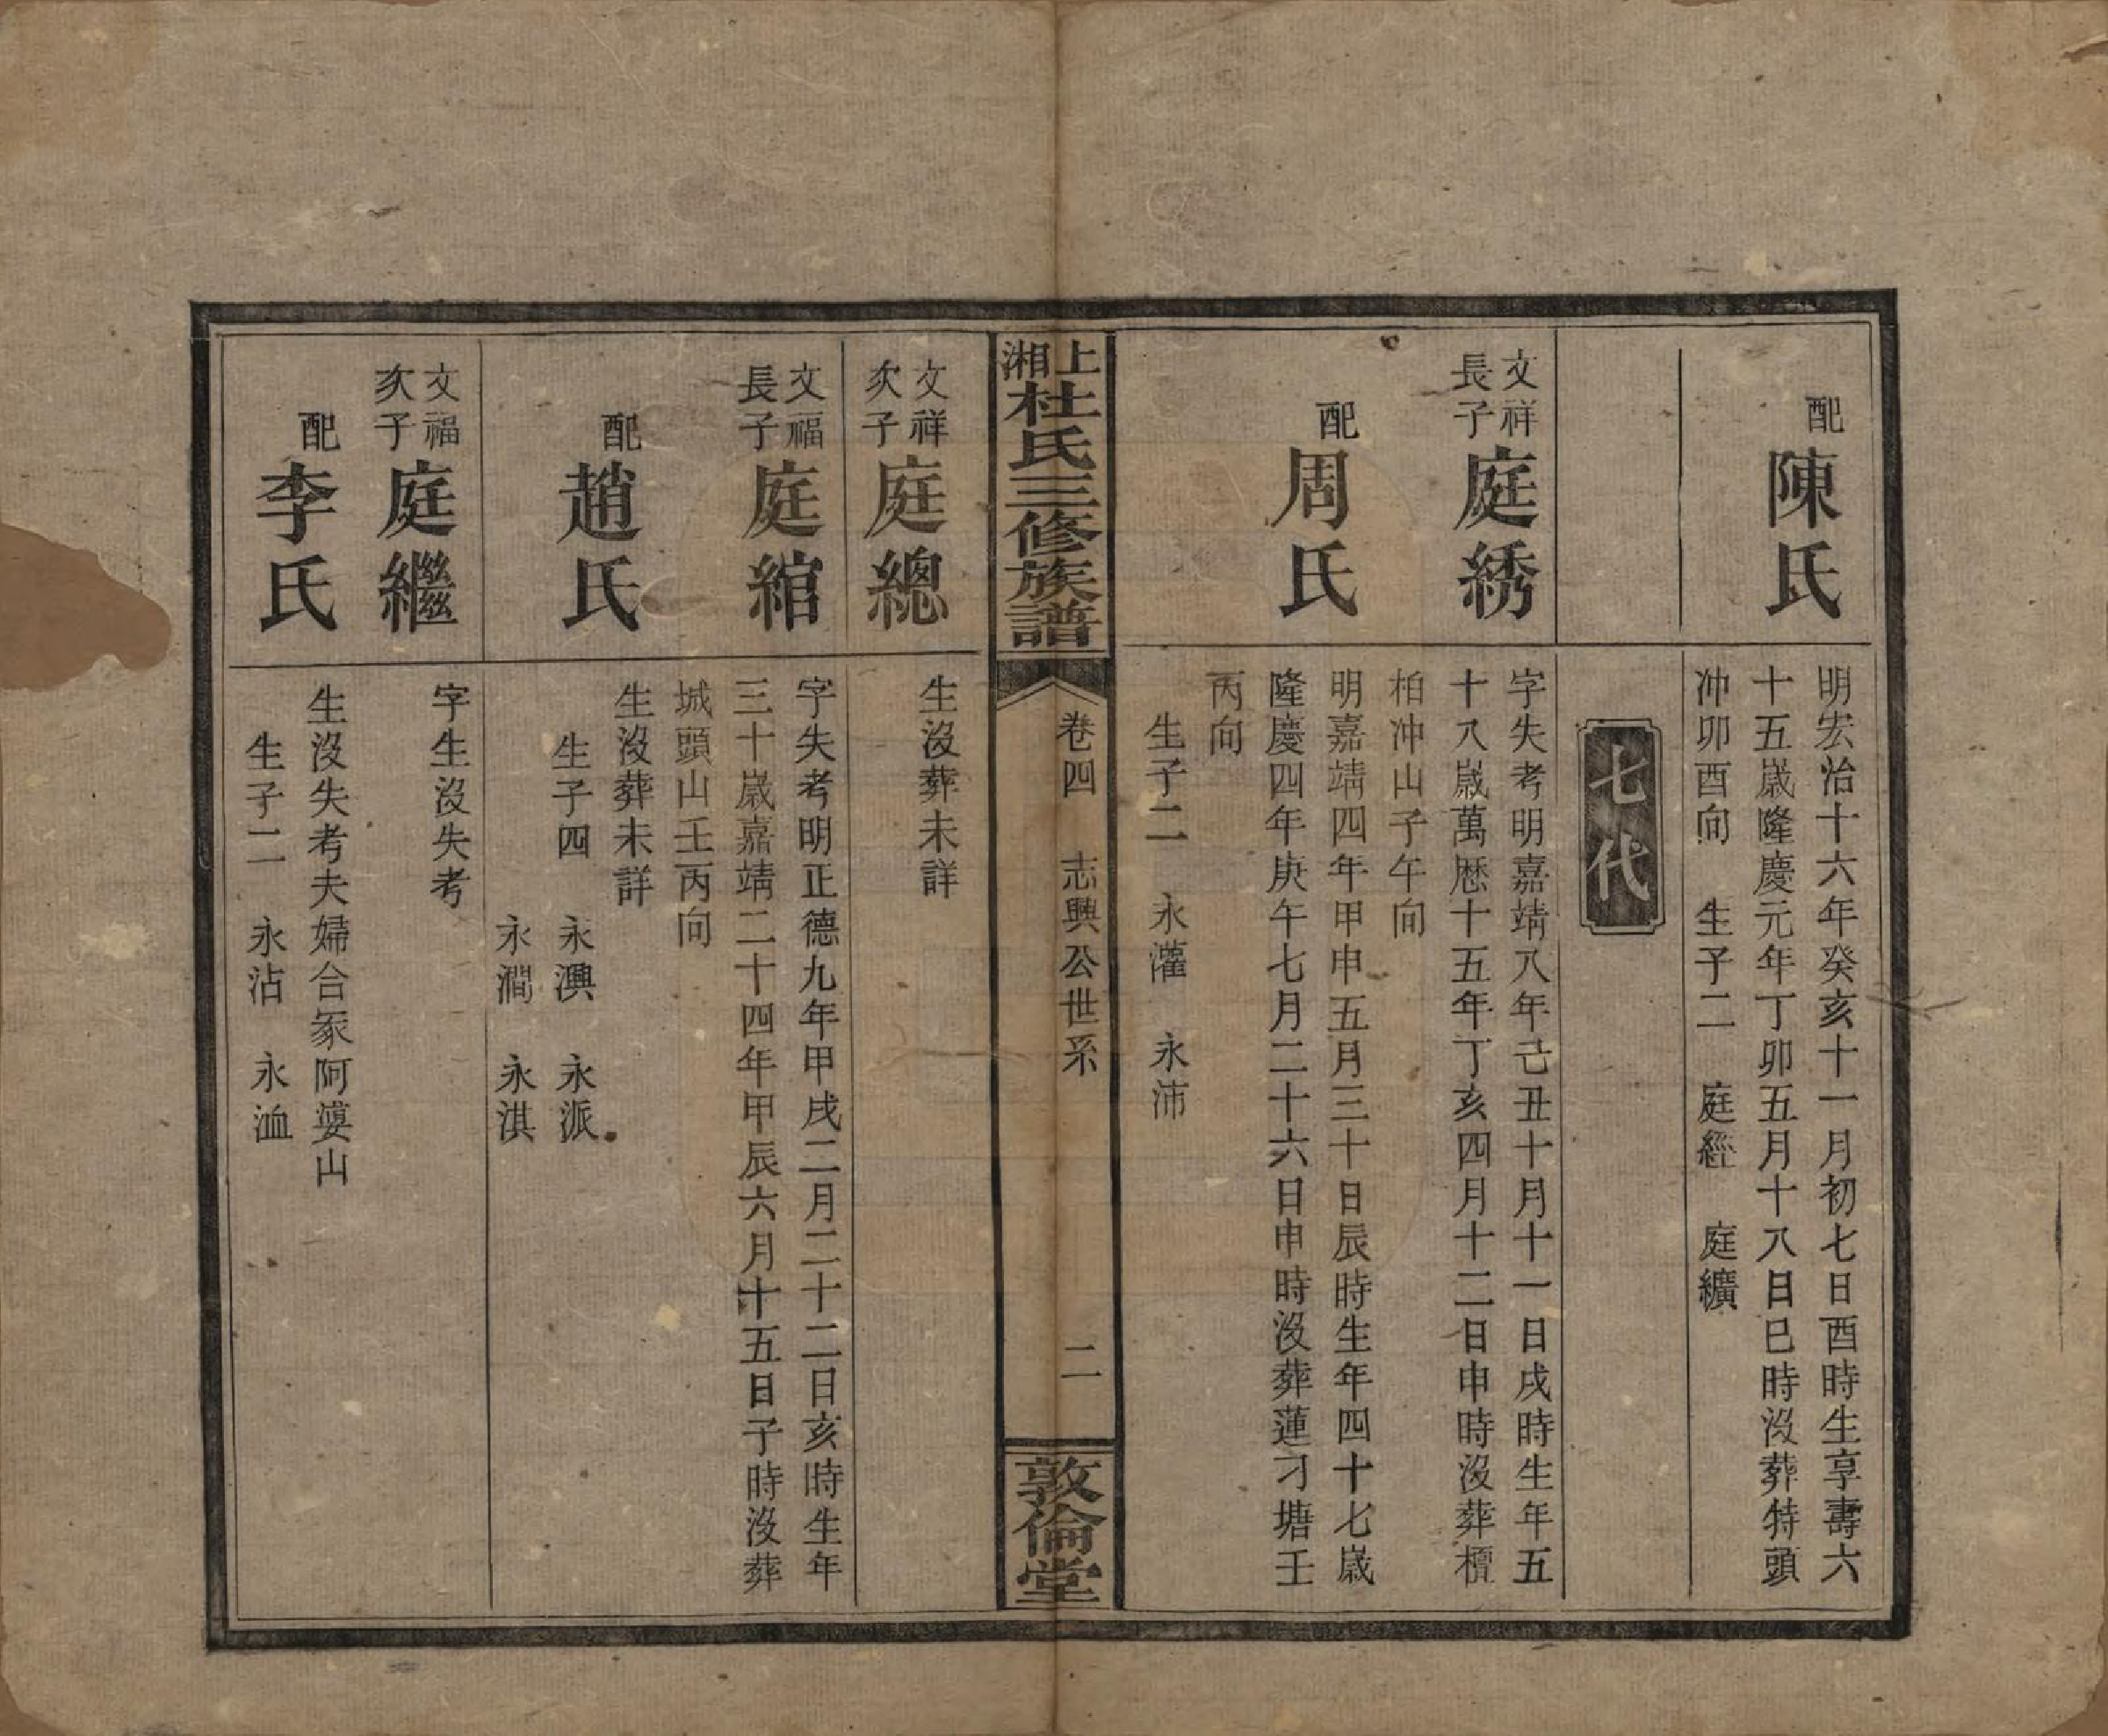 配
陳氏
明宏治十六年癸亥十一月初七日酉時生享壽六
十五歲隆慶元年丁卯五月十八日巳時沒葬特頭
冲卯酉向　生子二　庭經　庭纊
七代
文祥
長子
庭綉
字失考明嘉靖八年己丑十月十一日戌時生年五
十八歲萬歷十五年丁亥四月十二日申時沒葬檀
柏冲山子午向
配
周氏
明嘉靖四年甲申五月三十日辰時生年四十七歲
隆慶四年庚午七月二十六日申時沒葬蓮刁塘壬
丙向
生子二　永灌　永沛
上湘杜氏三修族譜
卷四　志興公世系
二
敦倫堂
文祥
次子
庭總
生沒葬未詳
文福
長子
庭綰
字失考明正德九年甲戌二月二十二日亥時生年
三十歲嘉靖二十四年甲辰六月十五日子時沒葬
城頭山壬丙向
配
趙氏
生沒葬未詳
生子四　永澳　永派
永澗　永淇
文福
次子
庭繼
字生沒失考
配
李氏
生沒失考夫婦合冢阿婆山
生子二　永沾　永洫